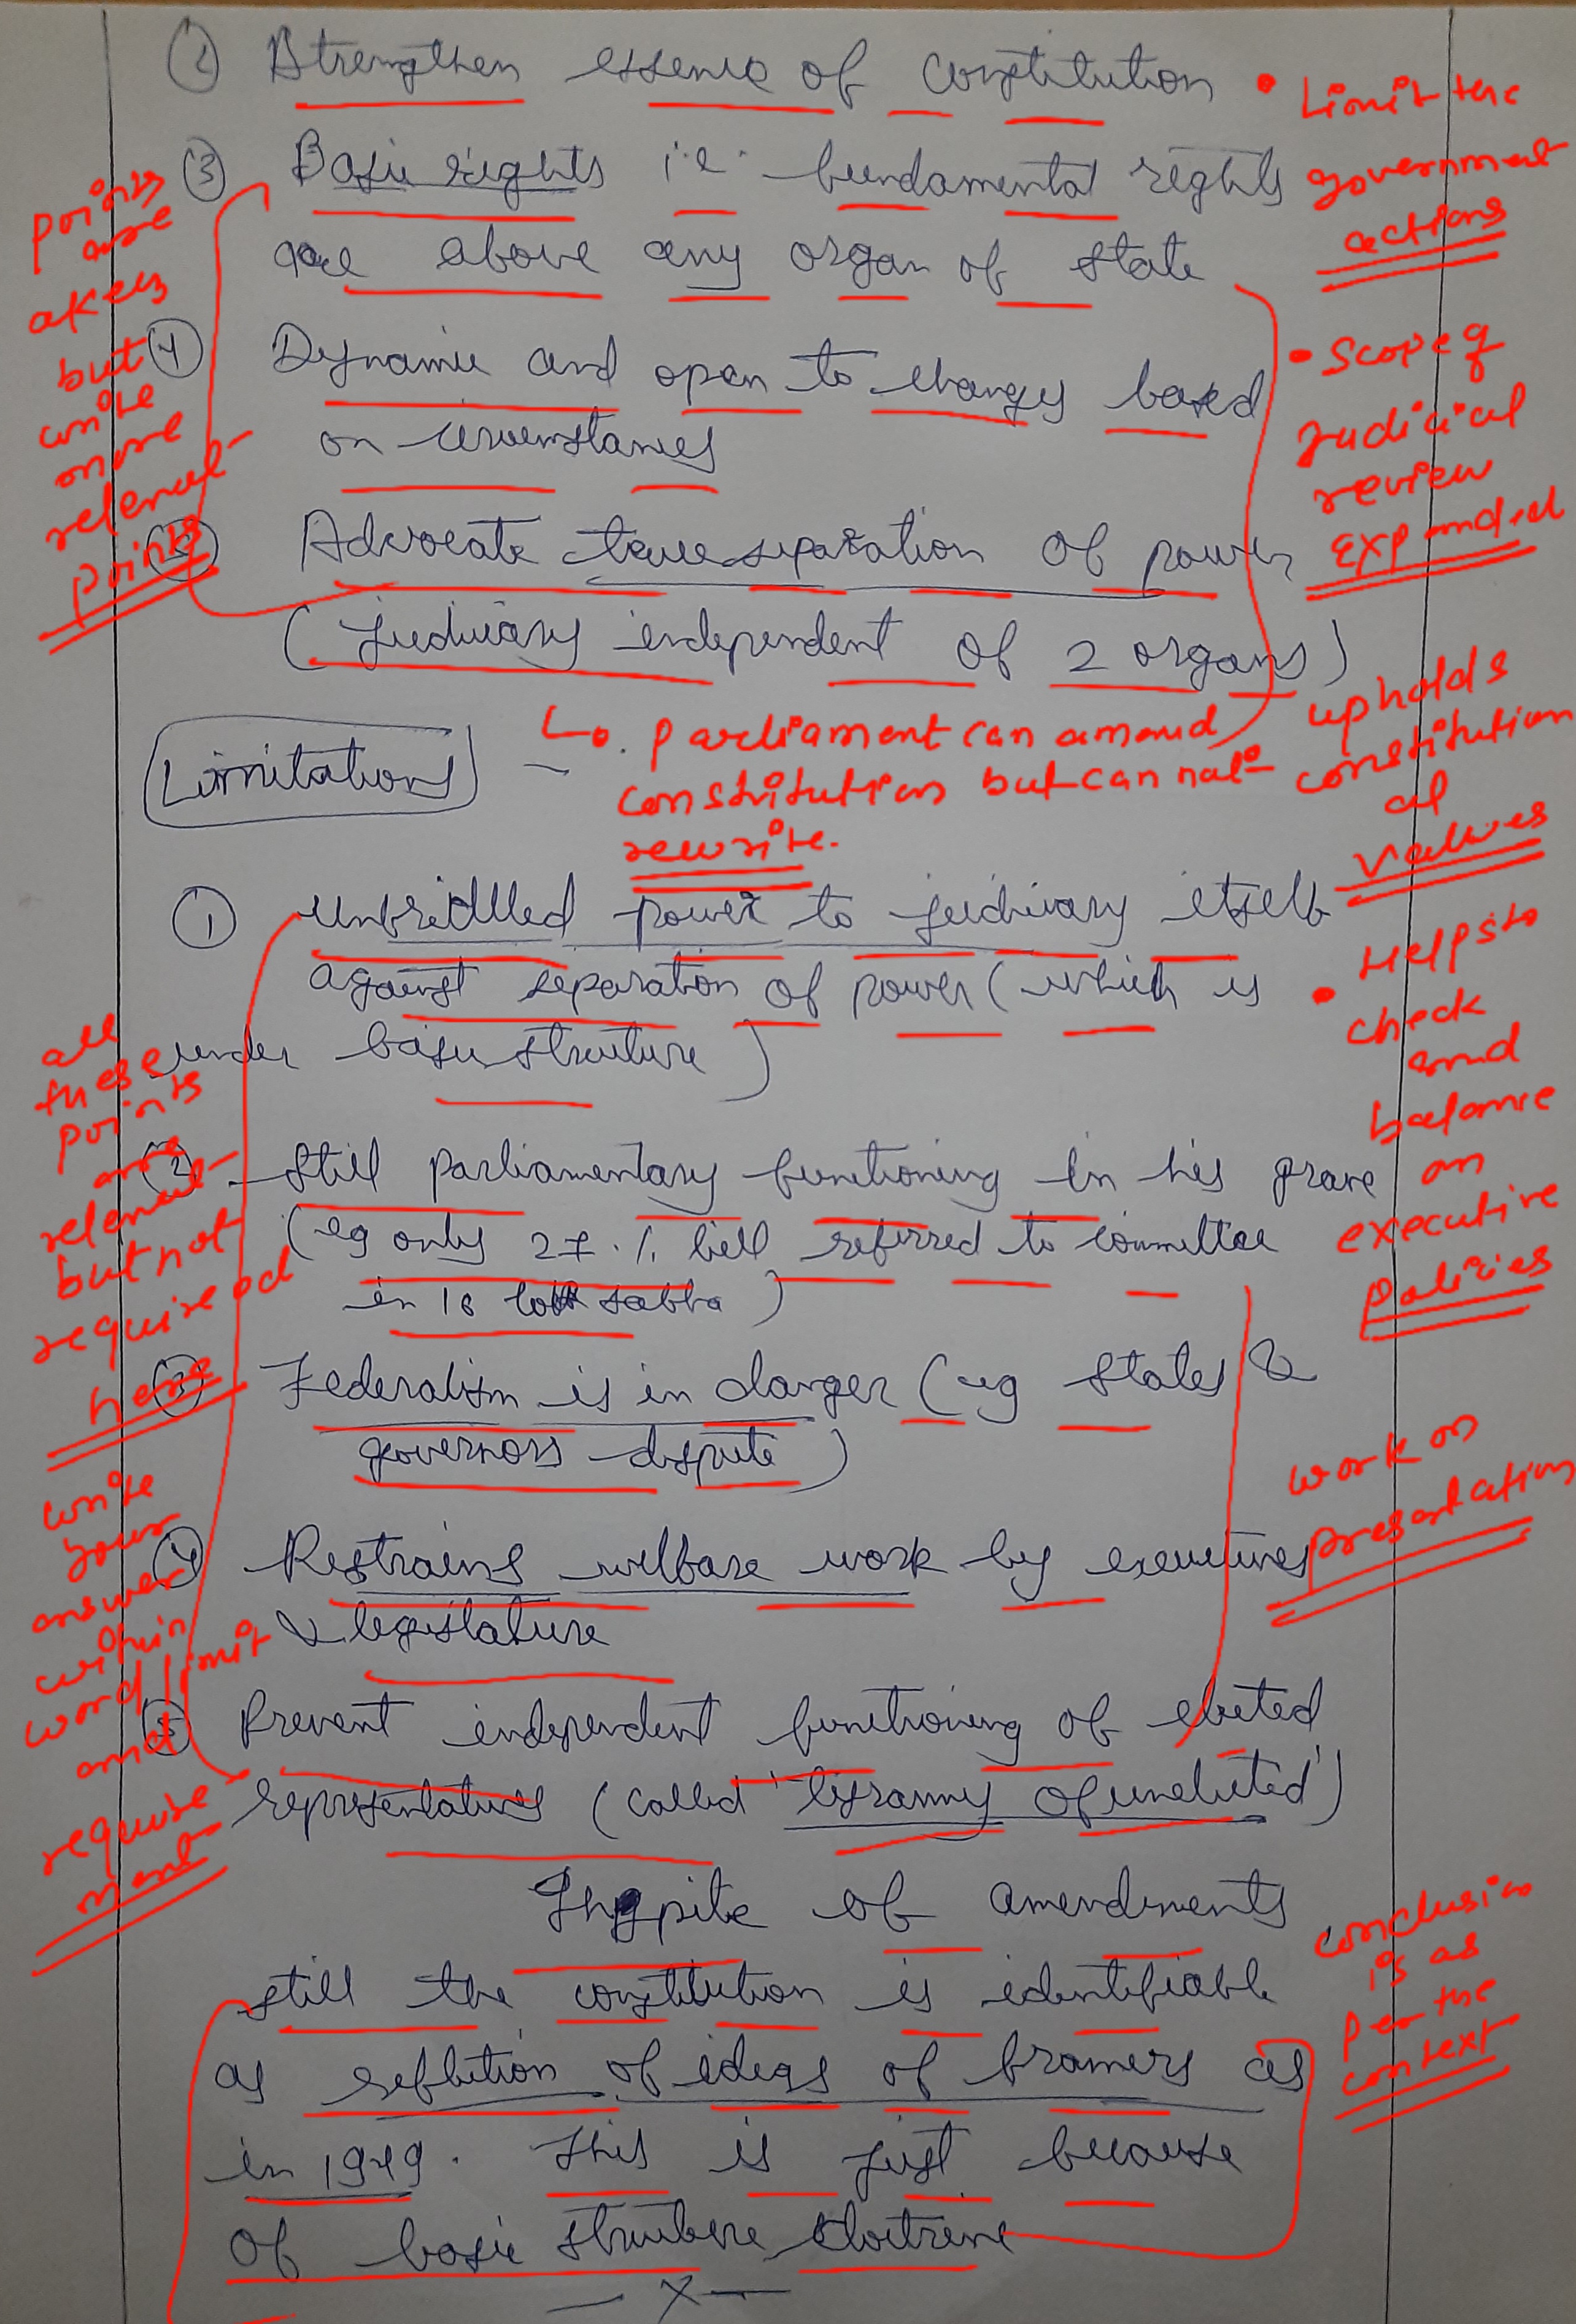 (2) Strengthen essence of constitution
(3) Basic rights i.e. fundamental rights
are above any organ of state
(4) Dynamic and open to changes based
on circumstances
(5) Advocate true separation of power
(judiciary independent of 2 organs)
Limitations -
(1) Unbridlled power to judiciary itself
against separation of power (which is
under basic structure)
(2) Still parliamentary functioning in his grave
(eg only 27 % bill referred to committee
in 16 lok sabha)
(3) Federalism is in danger (eg states &
governors dispute)
(4) Restrains welfare work by executives
& legislature
(5) Prevent independent functioning of elected
representatives (called 'tyranny of unelected')
Inspite of amendments
still the constitution is identifiable
as reflection of ideas of framers as
in 1949. This is just because
of basic structure doctrine
— x —
points
are
okey
but
write
more
relevant
points
• Limit the
government
actions
• Scope of
judicial
review
expanded
↳ . Parliament can amend
constitution but can not
rewrite.
upholds
constitution
al
values
• Helps to
check
and
balance
on
executive
policies
all
these
points
are
relevant
but not
required
here
write
your
answer
within
word limit
and
require
ment
work on
presentation
conclusion
is as
per the
context